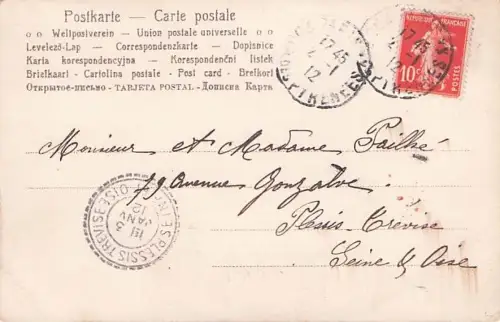 Postkarte — Carte postale
Weltpostverein — Union postale universelle
Levelező-Lap — Correspondenzkarte — Dopisnice
Karta korespondencyjna — Korespondenční lístek
Briefkaart - Cartolina postale - Post card - Brefkort
Открытое-письмо - TARJETA POSTAL - Дописна Карта
17 45
4 - 1
12
PYRENEES
17 45
4 - 1
12
REPUBLIQUE FRANÇAISE
10
POSTES
Monsieur et Madame Pailhé
79 Avenue Gonzalve
Plessis-Trevise
Seine & Oise
LE PLESSIS TREVISE
S.-ET-OISE
5
JANV
12